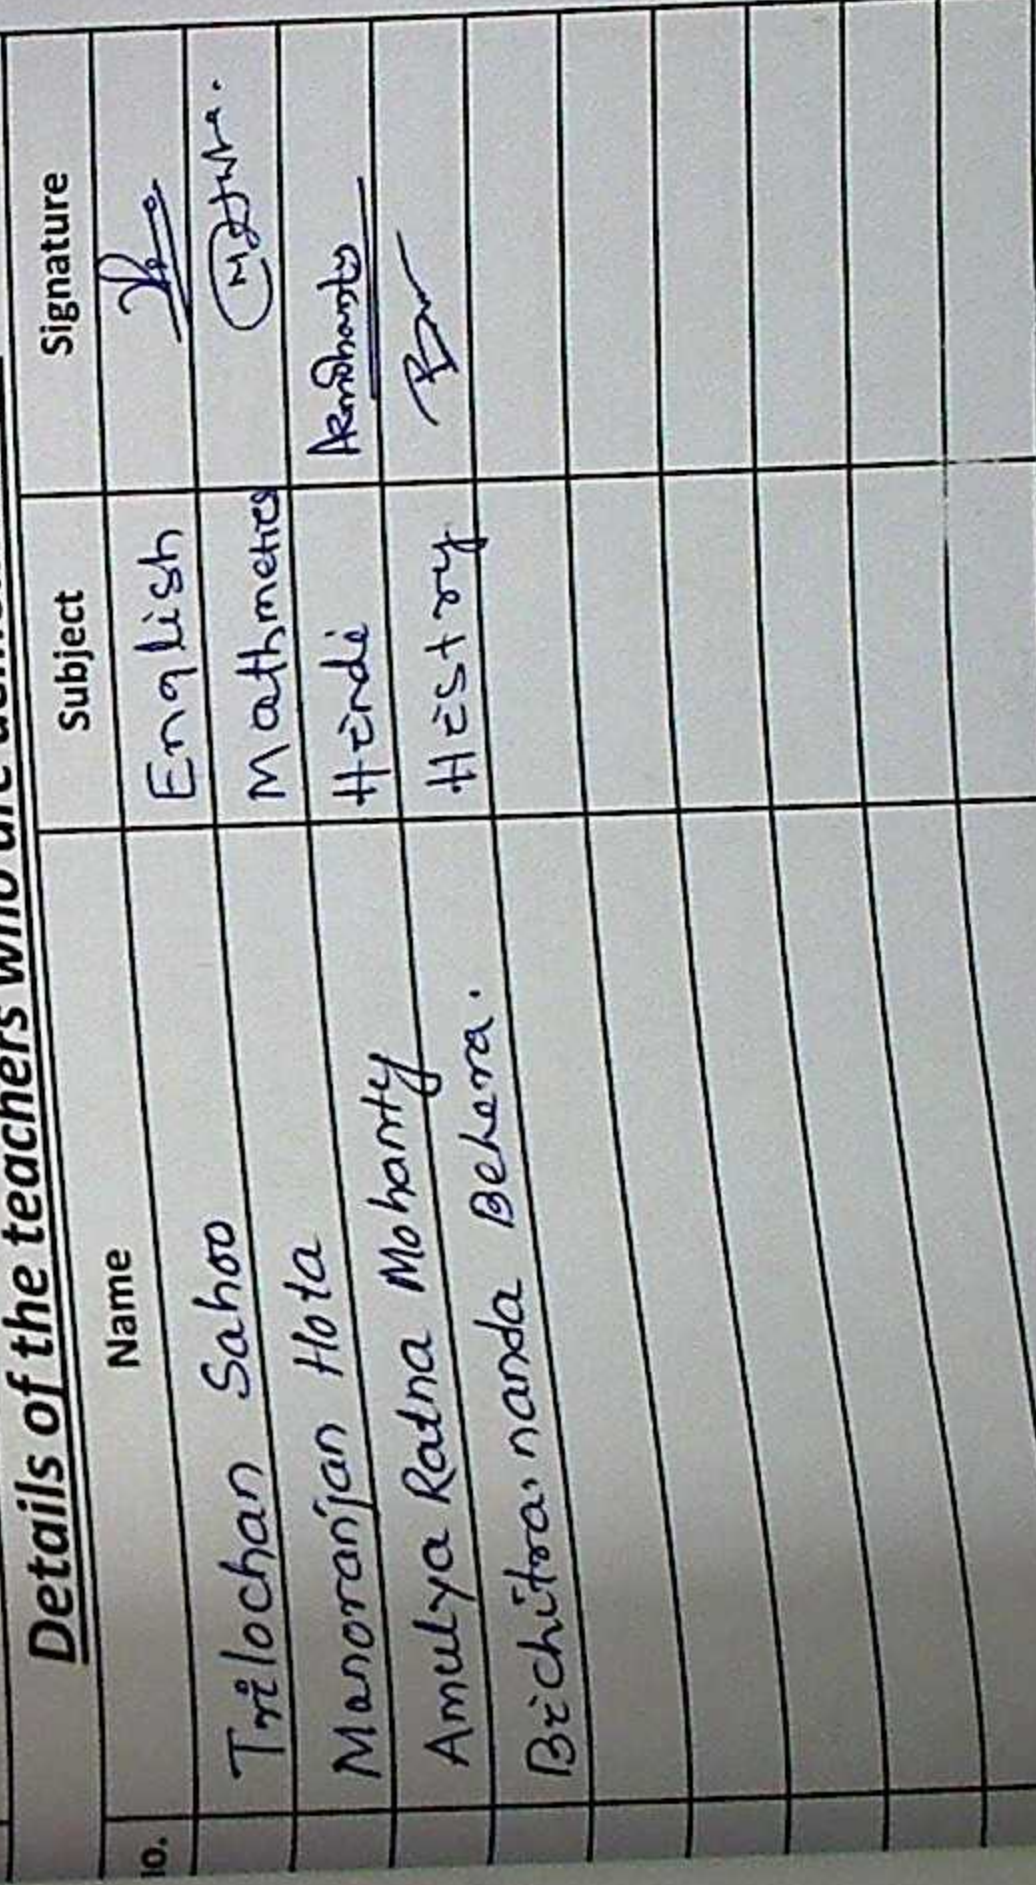 Details of the teachers who are
No. Name Subject Signature
Trilochan Sahoo English
Manoranjan Hota Mathmetics
Amulya Ratna Mohanty Hindi ARMohanty
Brichitrananda Behera. History